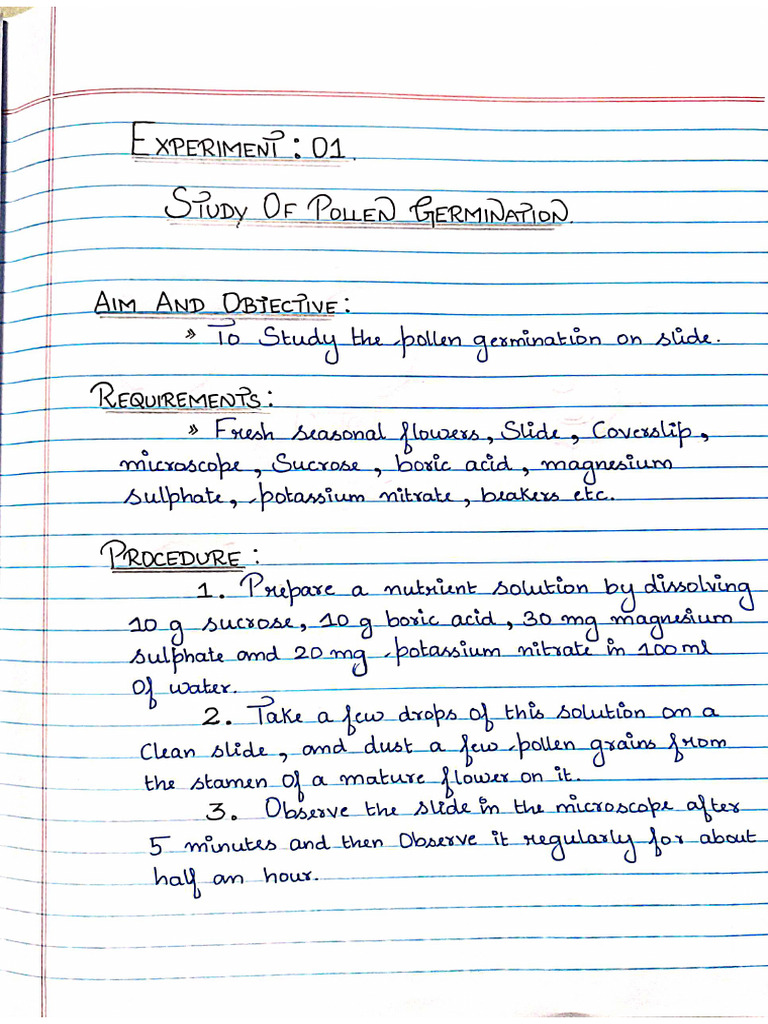 EXPERIMENT: 01.
STUDY OF POLLEN GERMINATION.
AIM AND OBJECTIVE:
» To Study the pollen germination on slide.
REQUIREMENTS:
» Fresh seasonal flowers, Slide, Coverslip,
microscope, Sucrose, boric acid, magnesium
sulphate, potassium nitrate, beakers etc.
PROCEDURE:
1. Prepare a nutrient solution by dissolving
10 g sucrose, 10 g boric acid, 30 mg magnesium
sulphate and 20 mg potassium nitrate in 100 ml
Of water.
2. Take a few drops of this solution on a
Clean slide, and dust a few pollen grains from
the stamen of a mature flower on it.
3. Observe the slide in the microscope after
5 minutes and then Observe it regularly for about
half an hour.